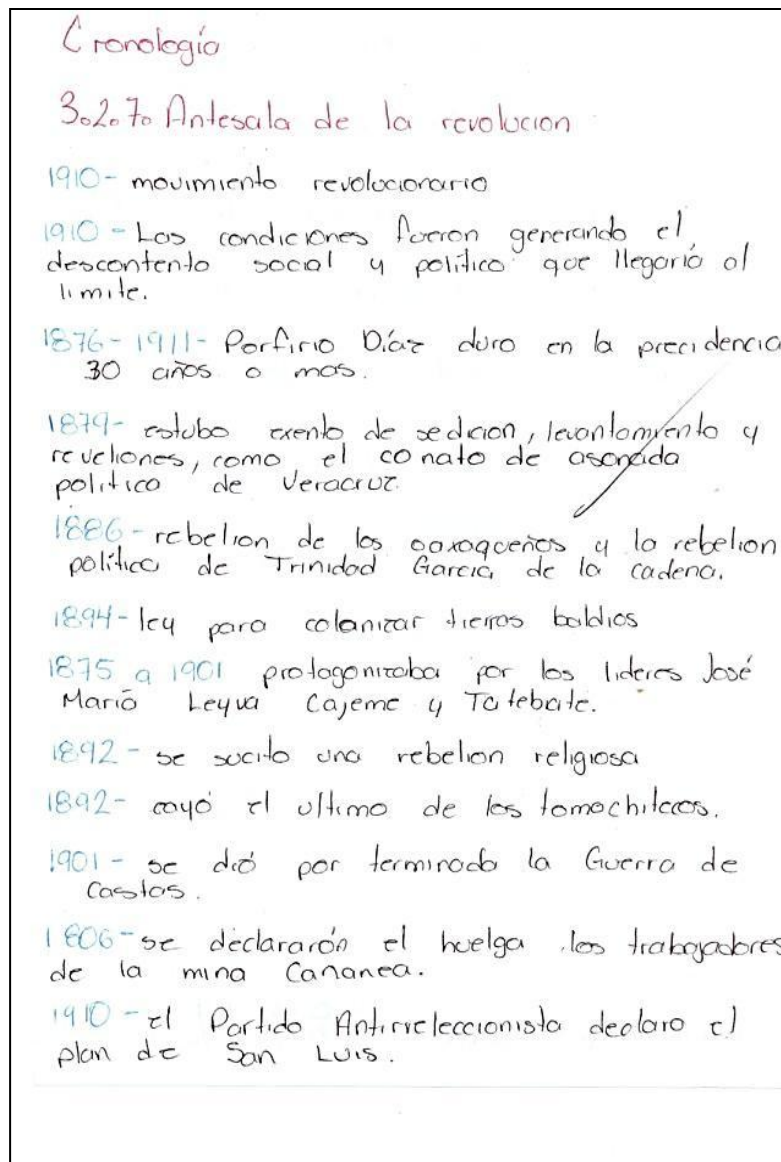 Cronología
3.2.7. Antesala de la revolucion
1910- movimiento revolucionario
1910 - Las condiciones fueron generando el
descontento social y politico que llegaría al
limite.
1876-1911- Porfirio Díaz duro en la precidencia
30 años o mas.
1879- estubo exento de sedicion, levantamiento y
reveliones, como el conato de asonada
politico de Veracruz.
1886- rebelion de los oaxaqueños y la rebelion
política de Trinidad Garcia de la cadena.
1894- ley para colanizar tierras baldios
1875 a 1901 protagonizaba por los lideres José
María Leyva Cajeme y Tatebate.
1892- se sucito una rebelion religiosa
1892- cayó el ultimo de los tomochitecos.
1901 - se dió por terminada la Guerra de
Castas.
1806- se declararón el huelga los trabajadores
de la mina Cananea.
1910 - el Partido Antirreleccionista declaro el
plan de San Luis.